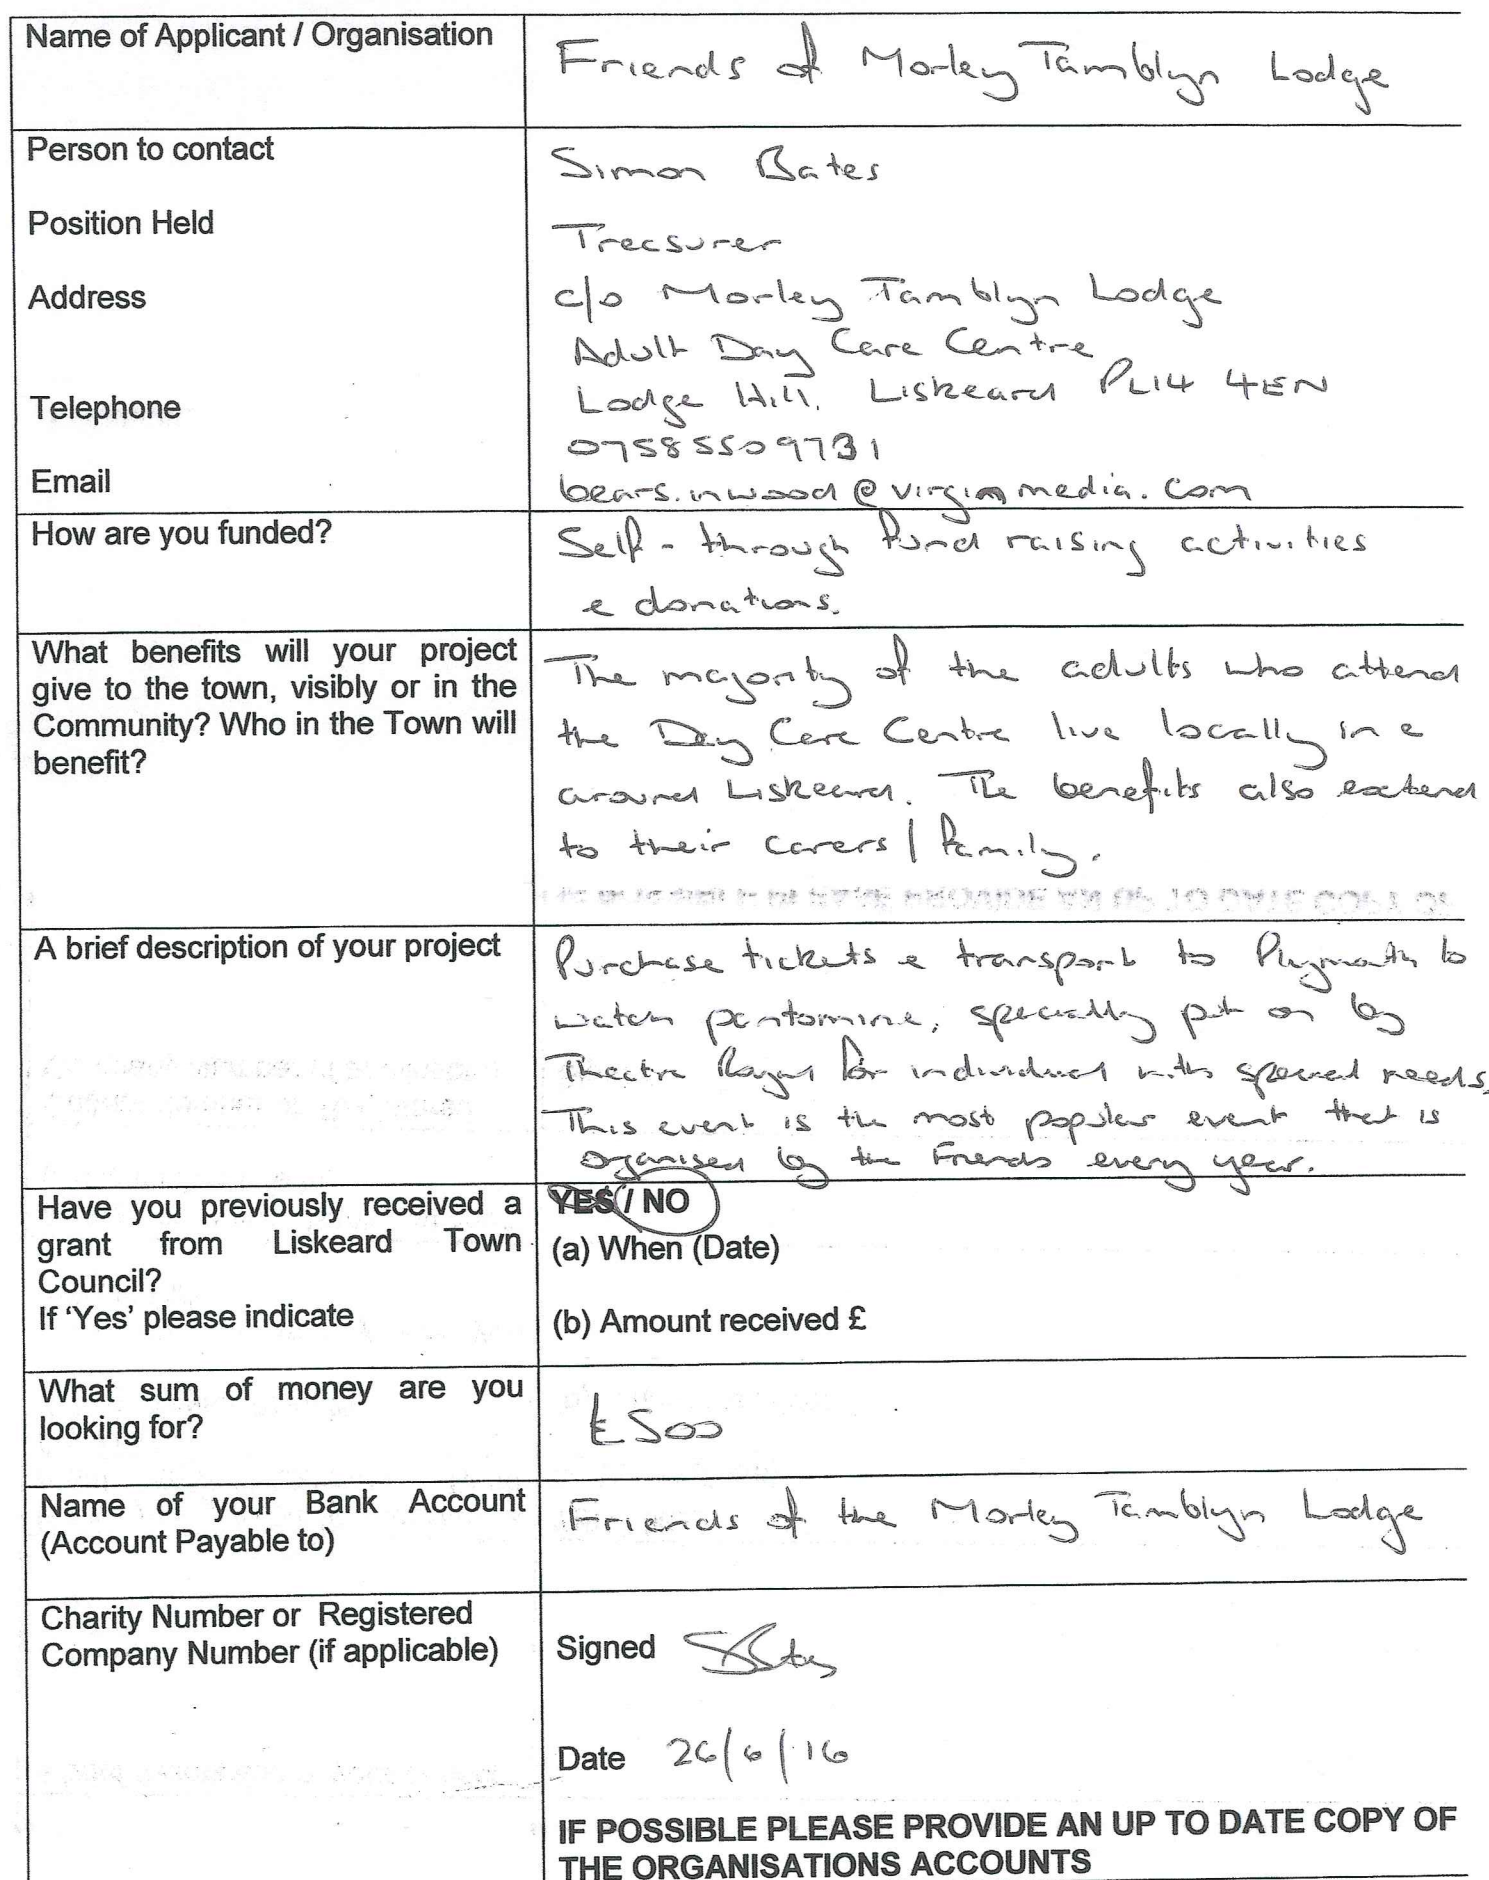 Name of Applicant / Organisation
Friends of Morley Tamblyn Lodge
Person to contact
Simon Bates
Position Held
Treasurer
Address
c/o Morley Tamblyn Lodge
Adult Day Care Centre
Lodge Hill, Liskeard PL14 4EN
Telephone
07585509731
Email
bears.inwood@virginmedia.com
How are you funded?
Self - through fund raising activities
& donations.
What benefits will your project
give to the town, visibly or in the
Community? Who in the Town will
benefit?
The majority of the adults who attend
the Day Care Centre live locally in &
around Liskeard. The benefits also extend
to their carers / family.
A brief description of your project
Purchase tickets & transport to Plymouth to
watch pantomine, specially put on by
Theatre Royal for individual with special needs.
This event is the most popular event that is
organised by the Friends every year.
Have you previously received a
grant from Liskeard Town
Council?
If 'Yes' please indicate
YES / NO
(a) When (Date)
(b) Amount received £
What sum of money are you
looking for?
£500
Name of your Bank Account
(Account Payable to)
Friends of the Morley Tamblyn Lodge
Charity Number or Registered
Company Number (if applicable)
Signed
Date 26/6/16
IF POSSIBLE PLEASE PROVIDE AN UP TO DATE COPY OF
THE ORGANISATIONS ACCOUNTS